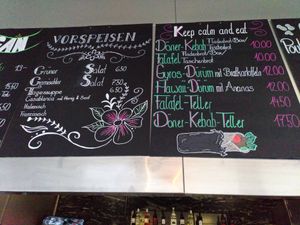 VORSPEISEN
Grüner Salat 4.50
Gemischter Salat 6.50
Tagessuppe 7.50
Casablanca mit Honig & Senf
Italienisch
Französisch
Keep calm and eat
Döner-Kebab Fladenbrot/Box 10.00
Taschenbrot
Falafel Fladenbrot/Box 10.00
Taschenbrot
Gyros-Dürüm mit Bratkartoffeln 12.00
Hawaii-Dürüm mit Ananas 12.00
Falafel-Teller 14.50
Döner-Kebab-Teller 17.50